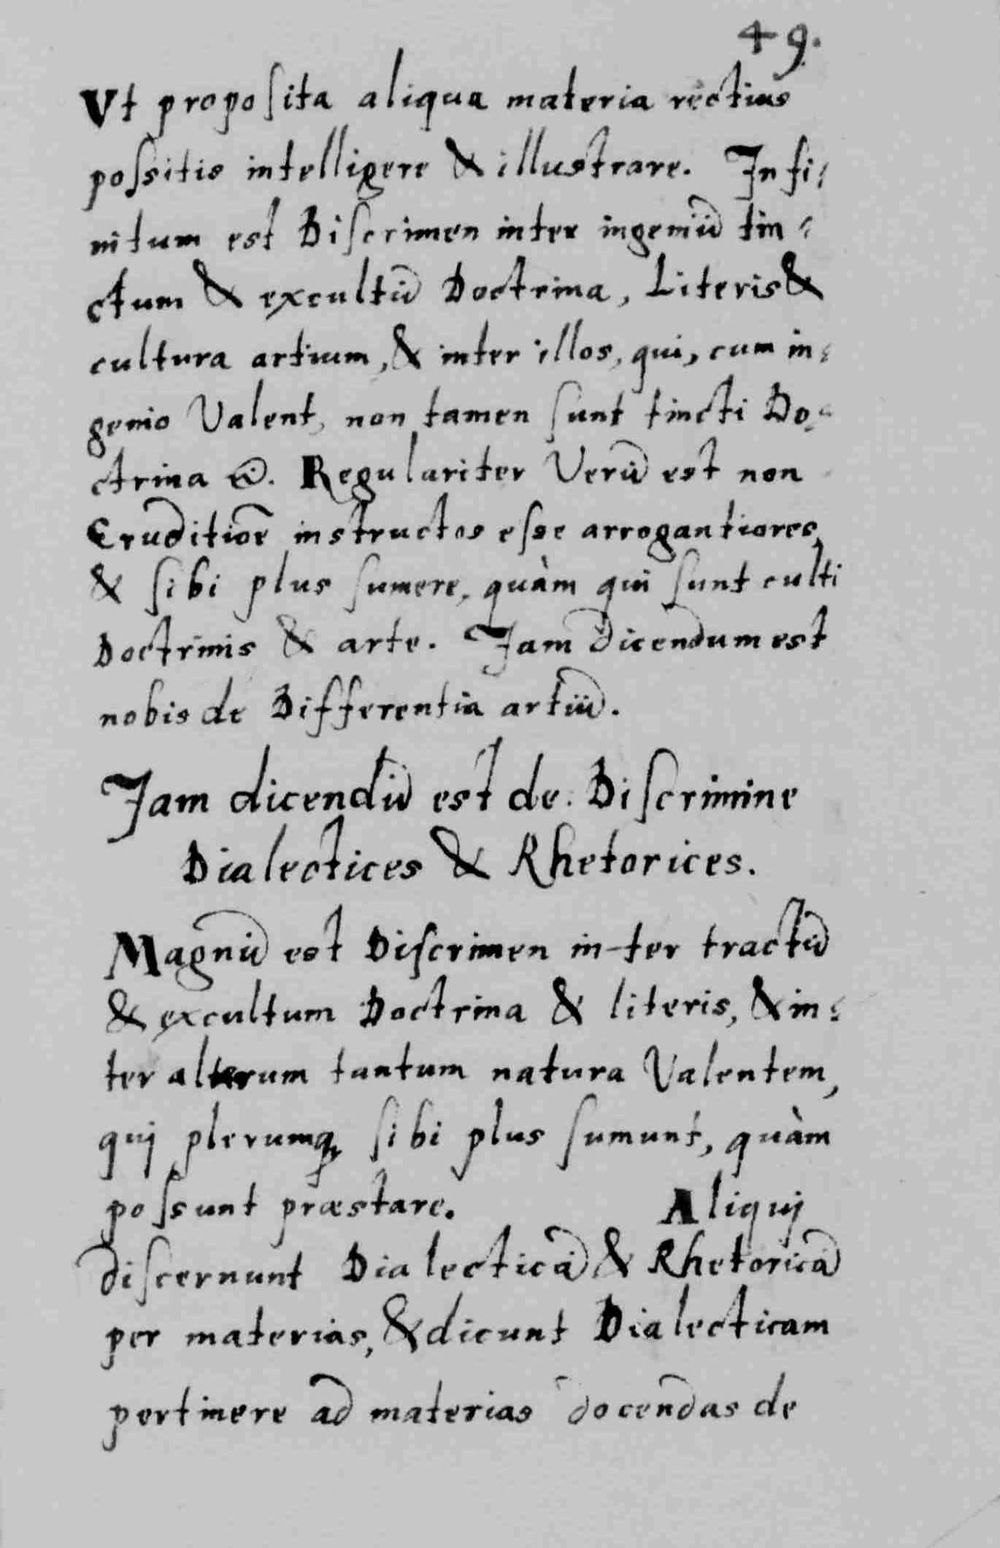 49.
Vt proposita aliqua materia rectius
possitis intelligere & illustrare. Infi:
nitum est Discrimen inter ingeniũ tin:
ctum & excultũ Doctrina, Literis &
cultura artium, & inter illos, qui, cum in:
genio Valent, non tamen sunt tincti Do:
ctrina &. Regulariter Verũ est non
Eruditiõe instructos esse arrogantiores,
& sibi plus sumere, quàm qui sunt culti
Doctrinis & arte. Jam dicendum est
nobis de Differentia artiũ.
Jam dicendũ est de Discrimine
Dialectices & Rhetorices.
Magnũ est Discrimen in-ter tractũ
& excultum Doctrina & literis, & in:
ter alterum tantum natura Valentem,
quj plerumq; sibi plus sumunt, quàm
possunt præstare. Aliquj
discernunt Dialecticã & Rhetoricã
per materias, & dicunt Dialecticam
pertinere ad materias docendas de